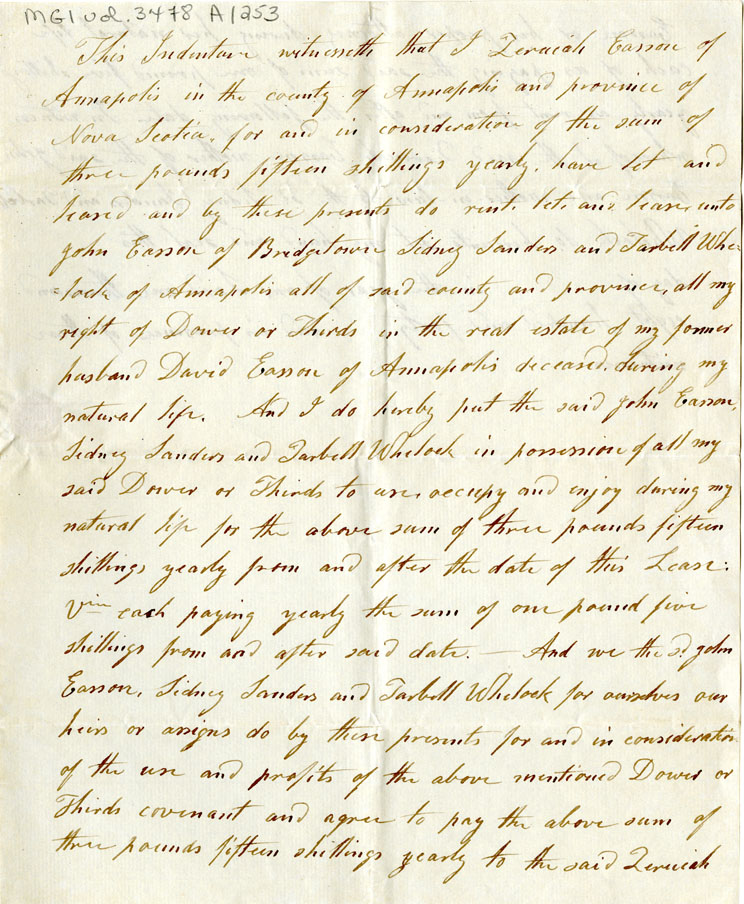 MG1 vol. 3478 A/253
This Indenture witnesseth that I Zeruiah Easson of
Annapolis in the county of Annapolis and province of
Nova Scotia, for and in consideration of the sum of
three pounds fifteen shillings yearly, have let and
leased and by these presents do rent, let, and lease, unto
John Easson of Bridgetown Sidney Sanders and Tarbell Whe-
=lock of Annapolis all of said county and province, all my
right of Dower or Thirds in the real estate of my former
husband David Easson of Annapolis deceased, during my
natural life. And I do hereby put the said John Easson,
Sidney Sanders and Tarbell Whelock in possession of all my
said Dower or Thirds to use, occupy and enjoy during my
natural life for the above sum of three pounds fifteen
shillings yearly from and after the date of this Lease:
Viz each paying yearly the sum of one pound five
shillings from and after said date. — And we the sd John
Easson, Sidney Sanders and Tarbell Whelock for ourselves our
heirs or assigns do by these presents for and in consideration
of the use and profits of the above mentioned Dower or
Thirds covenant and agree to pay the above sum of
three pounds fifteen shillings yearly to the said Zeruiah